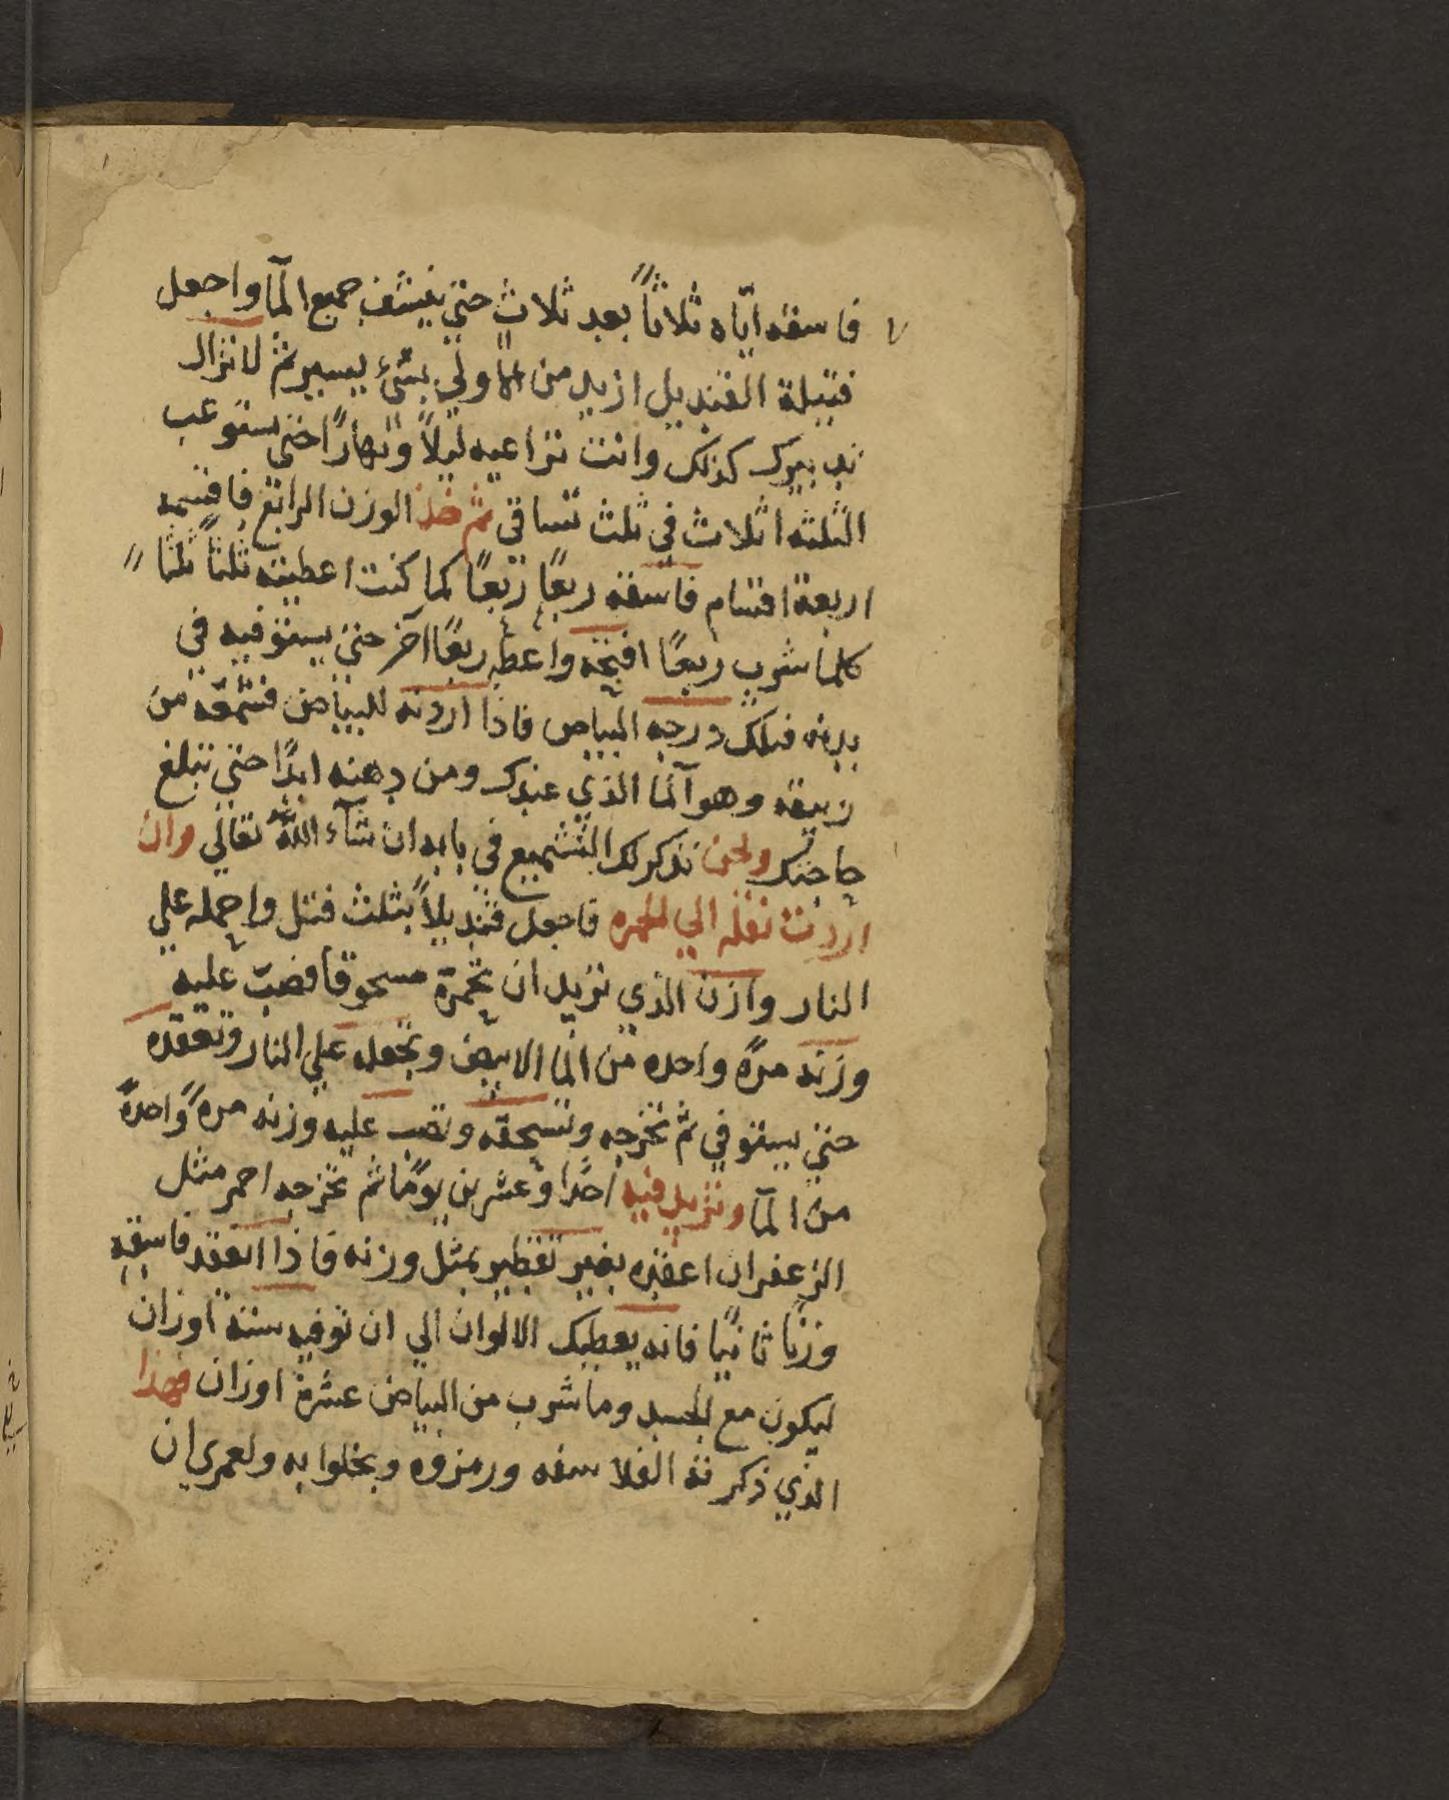 فاسقه اياه ثلاثاً بعد ثلاث حتي ينشف جميع المآ واجعل
فتيلة القنديل ازيد من الاولي بشئ يسير ثم لا تزال
تدبيرك كذلك وانت تراعيه ليلاً ونهارًا حتي يستوعب
الثلثه اثلاث في ثلث تساقي ثم خذ الوزن الرابع فاقسمه
اربعة اقسام فاسقه ربعًا ربعًا كما كنت اعطيته ثلثاً ثلثا
كلما شرب ربعًا افتحه واعطه ربعًا آخر حتي يستوفيه في
بدنه فتلك درجه البياض فاذا اردته للبياض فشمعه من
زيبقه وهو آلما الذي عندك ومن دهنه ابدًا حتي تبلغ
حاجتك ونحن نذكر لك التشميع في بابه ان شآء الله تعالي وان
اردت نقله الي الحمره فاجعل قنديلاً بثلث فتل واحمله علي
النار وازن الذي تريد ان تحمرة مسحوقا فصب عليه
وزنه مرة واحده من الما الابيض وتجعله علي النار وتعقده
حتي يستوفي ثم تخرجه وتسحقه وتصب عليه وزنه مرة واحدة
من المآ وتزيد فيه احدا وعشرين يومًا ثم تخرجه احمر مثل
الزعفران اعقده بغير تقطير بمثل وزنه فاذا انعقد فاسقه
وزنًا ثانيًا فانه يعطيك الالوان الي ان توفيه ستة اوزان
ليكون مع الجسد وما شرب من البياض عشرة اوزان فهذا
الذي ذكرته الفلاسفه ورمزوه وبخلوا به ولعمري ان